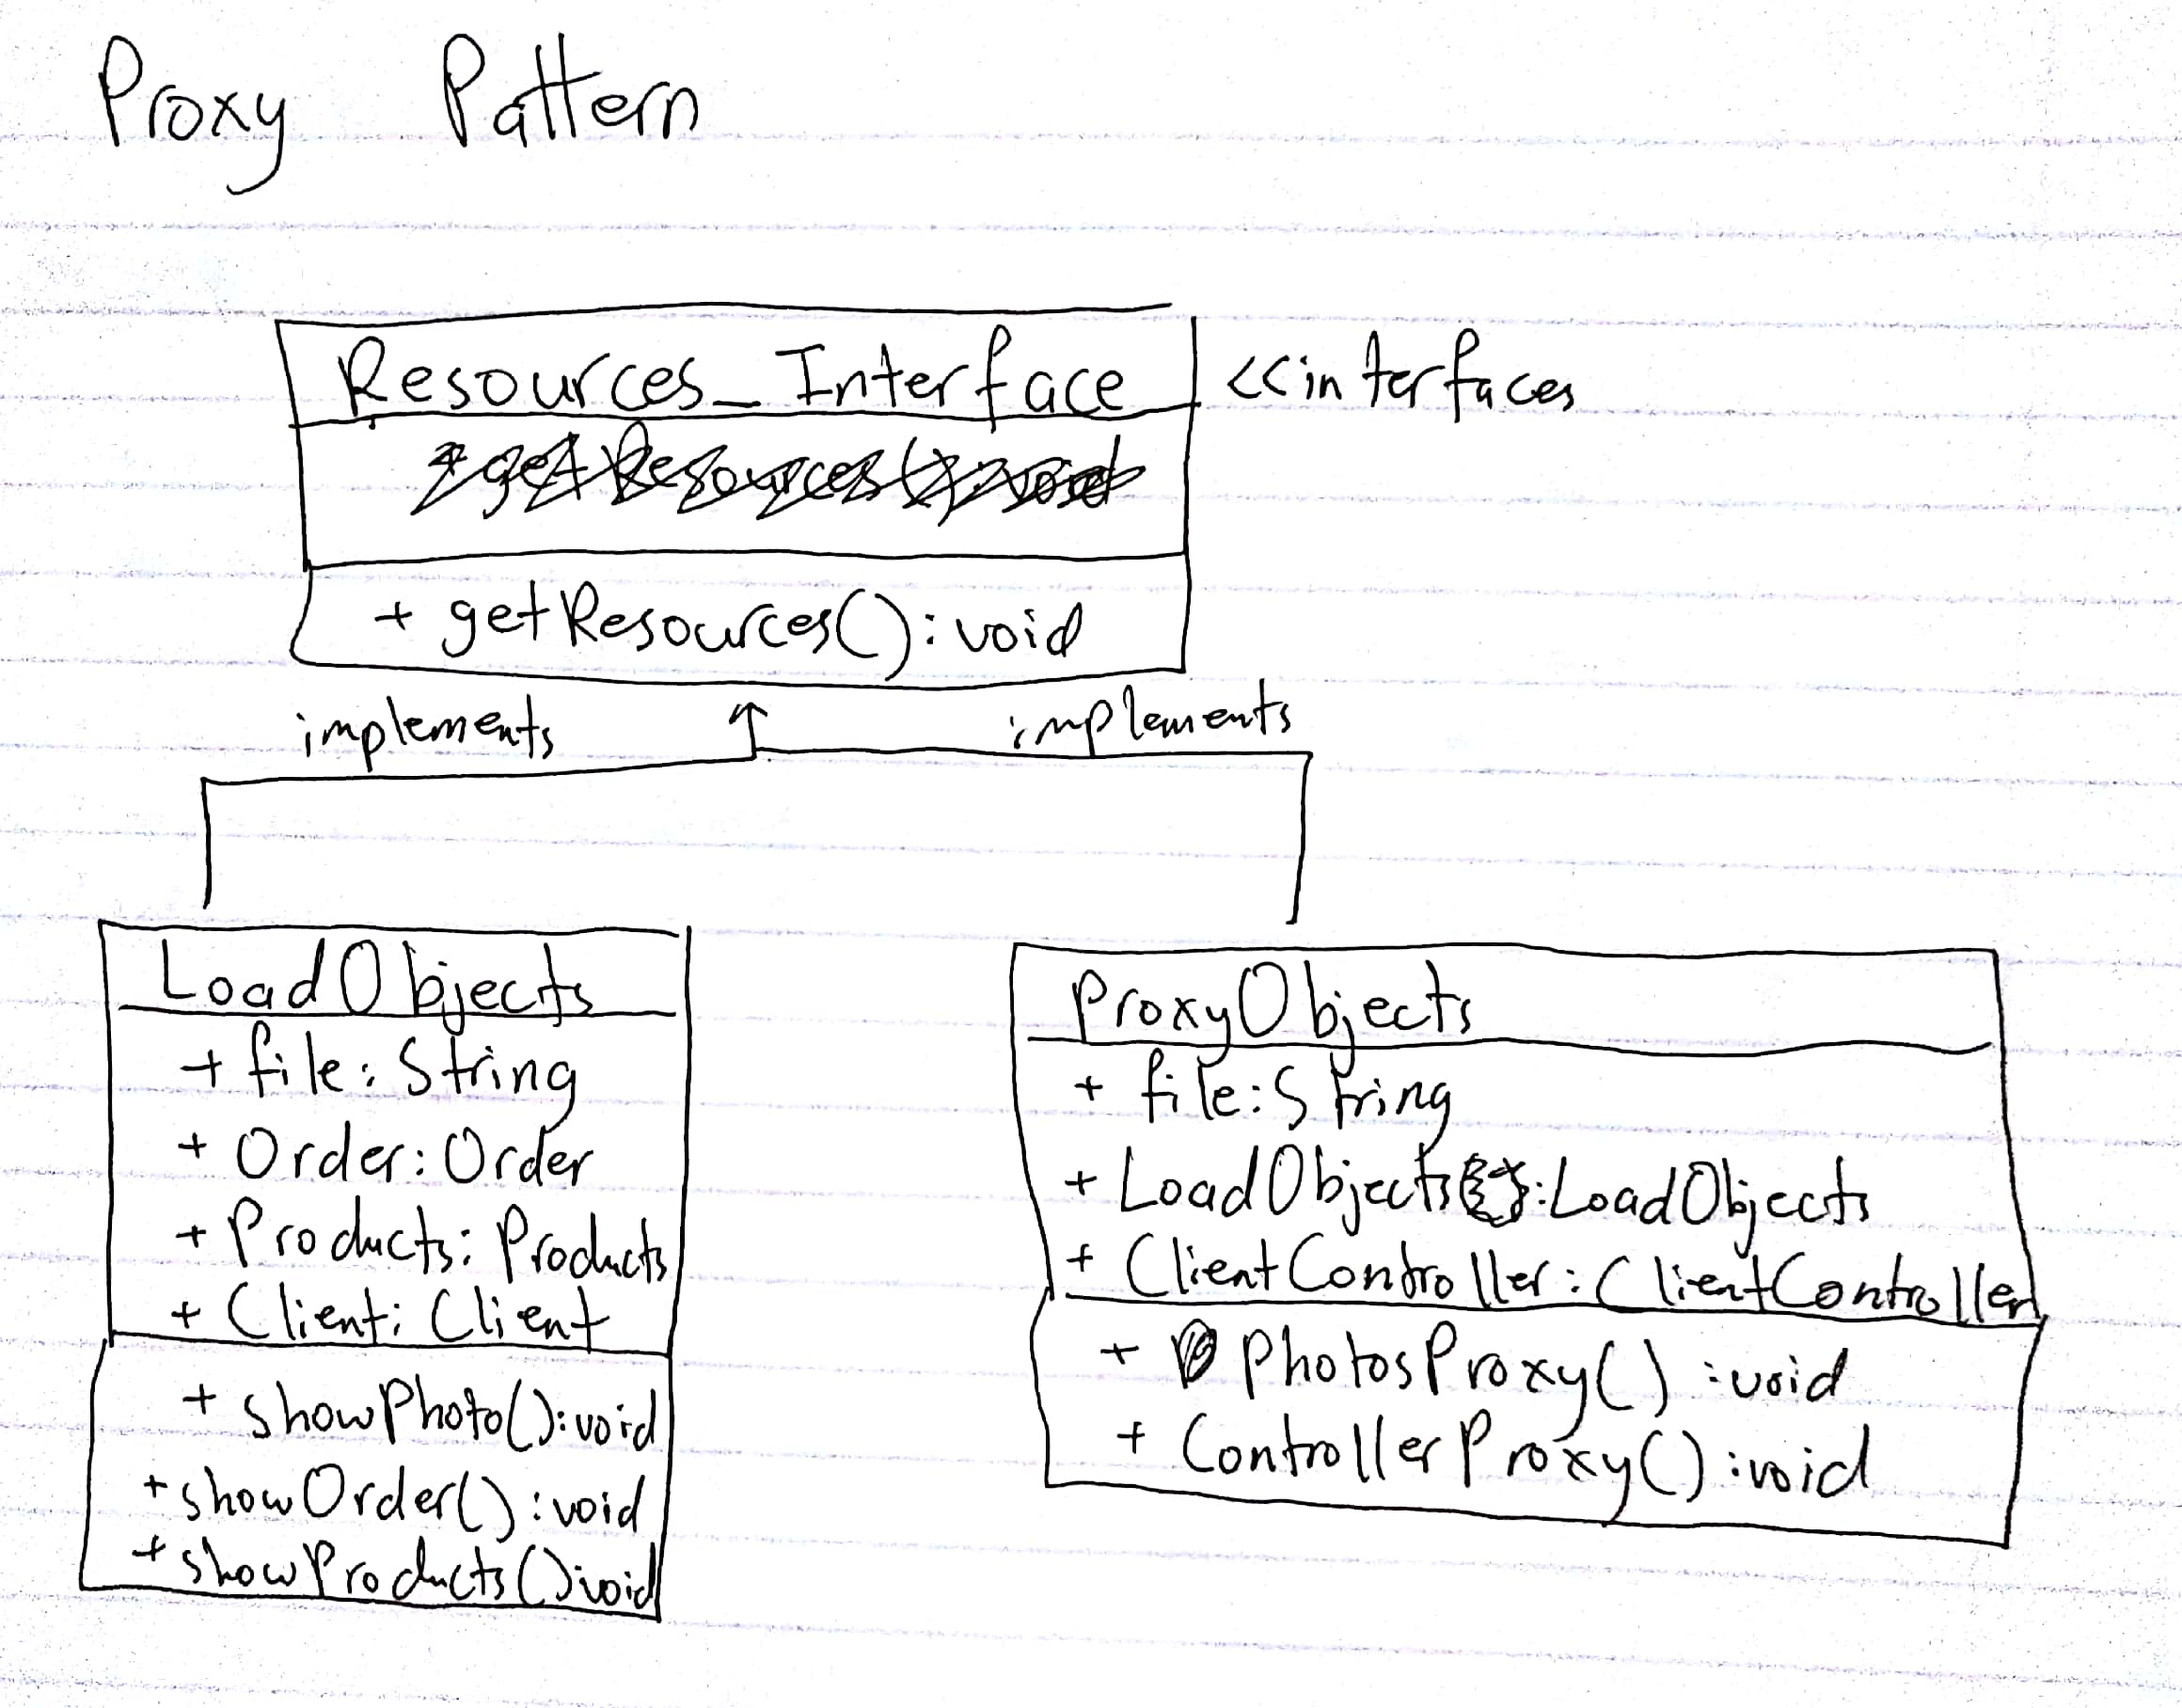 Proxy Pattern
Resources_Interface
<<interfaces
+ getResources():void
implements
implements
LoadObjects
+ file:String
+ Order:Order
+ Products:Products
+ Client:Client
+ showPhoto():void
+ showOrder():void
+ showProducts():void
ProxyObjects
+ file:String
+ LoadObjects:LoadObjects
+ ClientController:ClientController
+ PhotosProxy():void
+ ControllerProxy():void